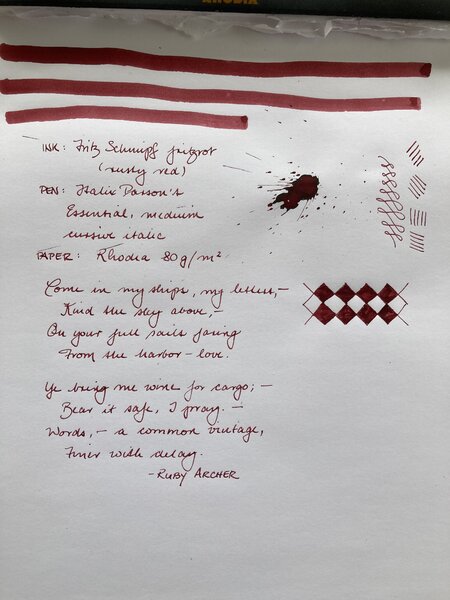 RHODIA
INK: Fritz Schimpf fritzrot
(rusty red)
PEN: Italix Parson's
Essential, medium
cursive italic
PAPER: Rhodia 80g/m²
Come in my ships, my letters,—
Kind the sky above,—
On your full sails faring
From the harbor–love.
Ye bring me wine for cargo;—
Bear it safe, I pray.—
Words,— a common vintage,
Finer with delay.
-RUBY ARCHER